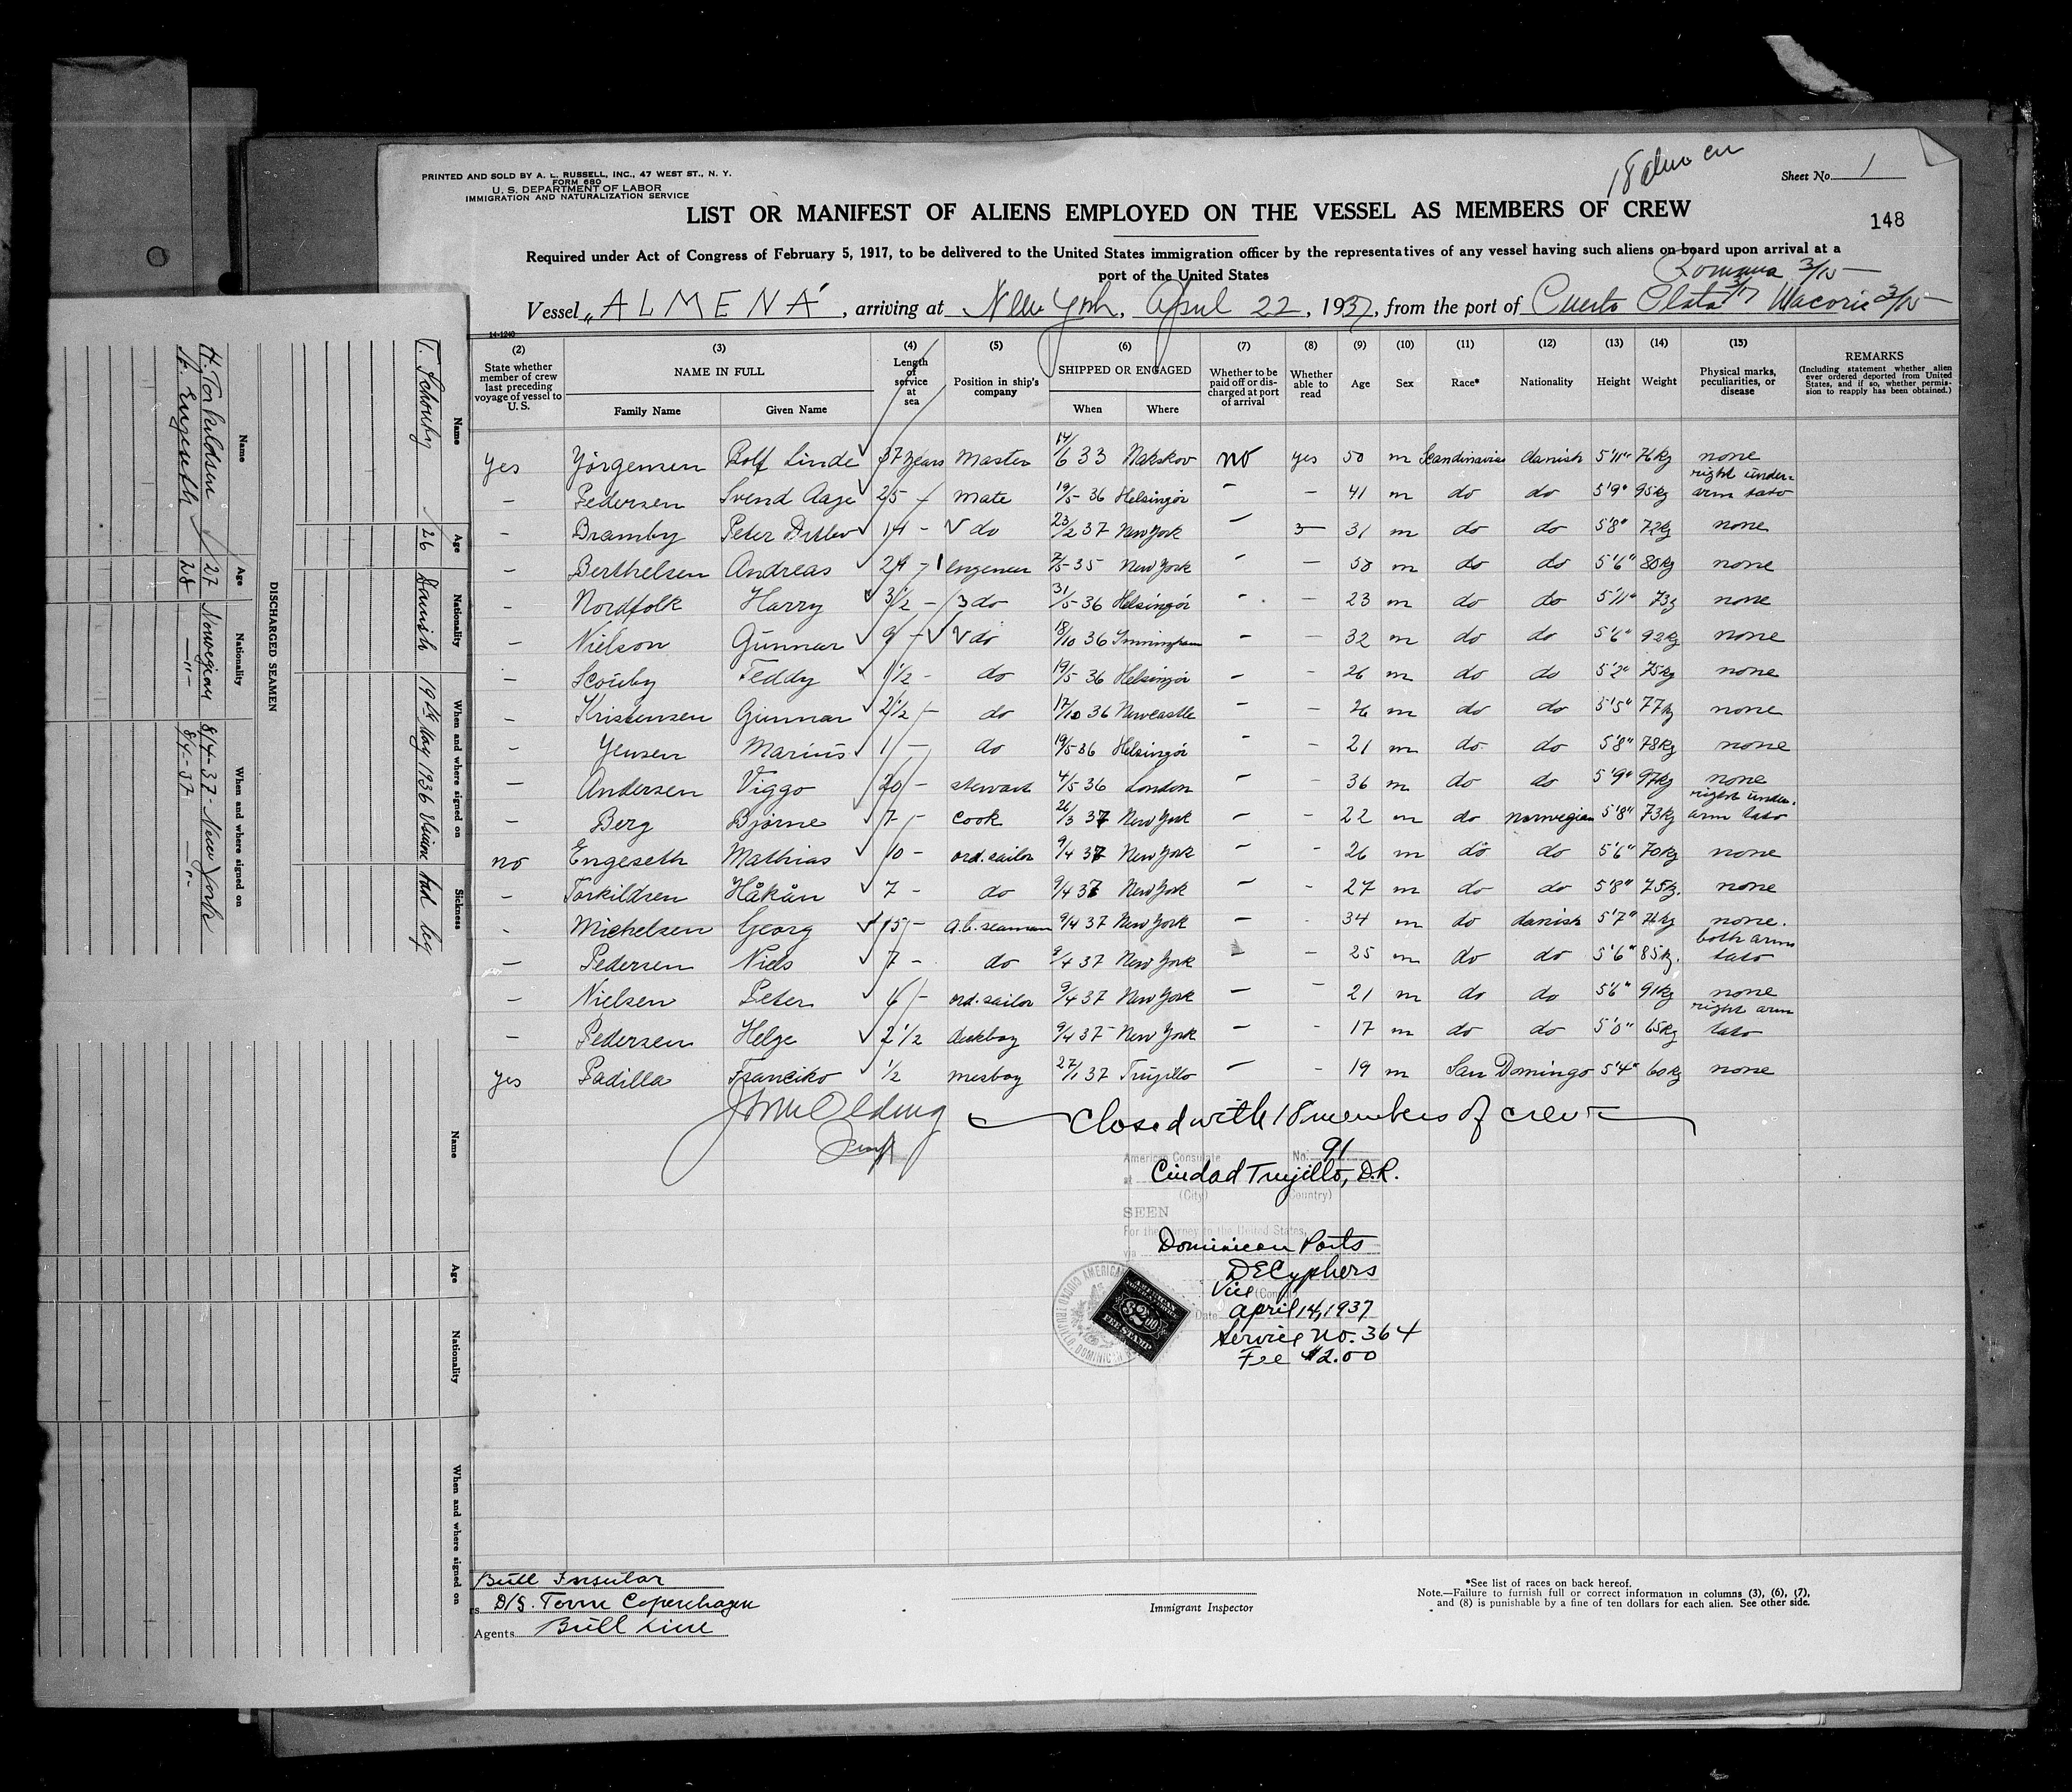 PRINTED AND SOLD BY A. L. RUSSELL, INC., 47 WEST ST., N. Y.
FORM 680
U. S. DEPARTMENT OF LABOR
IMMIGRATION AND NATURALIZATION SERVICE
Sheet No. 1
148
LIST OR MANIFEST OF ALIENS EMPLOYED ON THE VESSEL AS MEMBERS OF CREW
Required under Act of Congress of February 5, 1917, to be delivered to the United States immigration officer by the representatives of any vessel having such aliens on board upon arrival at a
port of the United States
Romana 3/15
Vessel "ALMENA", arriving at New York, April 22, 1937, from the port of
14-1240
(2) (3) (4) (5) (6) (7) (8) (9) (10) (11) (12) (13) (14) (15)
State whether member of crew last preceding voyage of vessel to U. S.
NAME IN FULL
Family Name Given Name
Length of service at sea
Position in ship's company
SHIPPED OR ENGAGED
When Where
Whether to be paid off or discharged at port of arrival
Whether able to read
Age Sex Race* Nationality Height Weight
Physical marks, peculiarities, or disease
REMARKS
(Including statement whether alien ever ordered deported from United States, and if so, whether permission to reapply has been obtained.)
yes Yörgensen Rolf Linde 37 years Master 14/6 33 Nakskov no yes 50 m Scandinavias danish 5'11" 76kg none
– Pedersen Svend Aage 25 – mate 19/5-36 Helsingör – – 41 m do do 5'9" 95kg right under-arm tato
– Bramby Peter Detlev 14 – do 23/2 37 New York – 31 m do do 5'8" 72kg none
– Berthelsen Andreas 29 – 1 engeneer 7/5-35 New York – – 50 m do do 5'6" 80kg none
– Nordfolk Harry 3 1/2 – 3 do 31/5-36 Helsingör – – 23 m do do 5'11" 73g none
– Nielson Gunnar 9 – do 18/10 36 – – 32 m do do 5'6" 92kg none
– Scouby Teddy 1 1/2 – do 19/5-36 Helsingör – – 26 m do do 5'2" 75kg none
– Kristensen Gunnar 2 1/2 – do 17/10 36 Newcastle – – 26 m do do 5'5" 77kg none
– Yensen Marius 1 – do 19/5-36 Helsingör – – 21 m do do 5'8" 78kg none
– Andersen Viggo 20 – stewart 4/5 36 London – – 36 m do do 5'9" 97kg none
– Berg Bjørne 7 – cook 26/3 37 New York – – 22 m do norwegian 5'8" 73kg right under-arm tato
no Engeseth Mathias 10 – ord. sailor 9/4 37 New York – – 26 m do do 5'6" 70kg none
– Torkildsen Håkån 7 – do 9/4 37 New York – – 27 m do do 5'8" 75g. none
– Michelsen Georg 15 – a.b. seaman 9/4 37 New York – – 34 m do danish 5'7" 71kg none.
– Pedersen Niels 7 – do 9/4 37 New York – – 25 m do do 5'6" 85kg. both arms tato
– Nielsen Peter 6 – ord. sailor 9/4 37 New York – – 21 m do do 5'6" 91kg none
– Pedersen Helge 2 1/2 deckboy 9/4 37 New York – – 17 m do do 5'0" 65kg right arm tato
yes Padilla Franciko 1/2 mesboy 27/1 37 Trujillo – – 19 m San Domingo 5'4" 60kg none
Closed with 18 members of crew
American Consulate No. 91
at Ciudad Trujillo, D.R.
(City) (Country)
SEEN
For the journey to the United States,
via Dominican Ports
DECyphers
Vice (Consul)
Date April 14, 1937
Service No. 364
Fee $2.00
AMERICAN
$2.00
FEE STAMP
Bull Insular
D/S. Torm Copenhagen
Agents Bull Line
Immigrant Inspector
*See list of races on back hereof.
Note.—Failure to furnish full or correct information in columns (3), (6), (7),
and (8) is punishable by a fine of ten dollars for each alien. See other side.
DISCHARGED SEAMEN
Name Age Nationality When and where signed on Sickness
T. Schouby 26 Danish 19th May 1936 bad leg
Name Age Nationality When and where signed on
H. Torkildsen 27 Norwegian 8/4-37- New York
M. Engeseth 28 –"– 8/4-37- –"–
Name Age Nationality When and where signed on